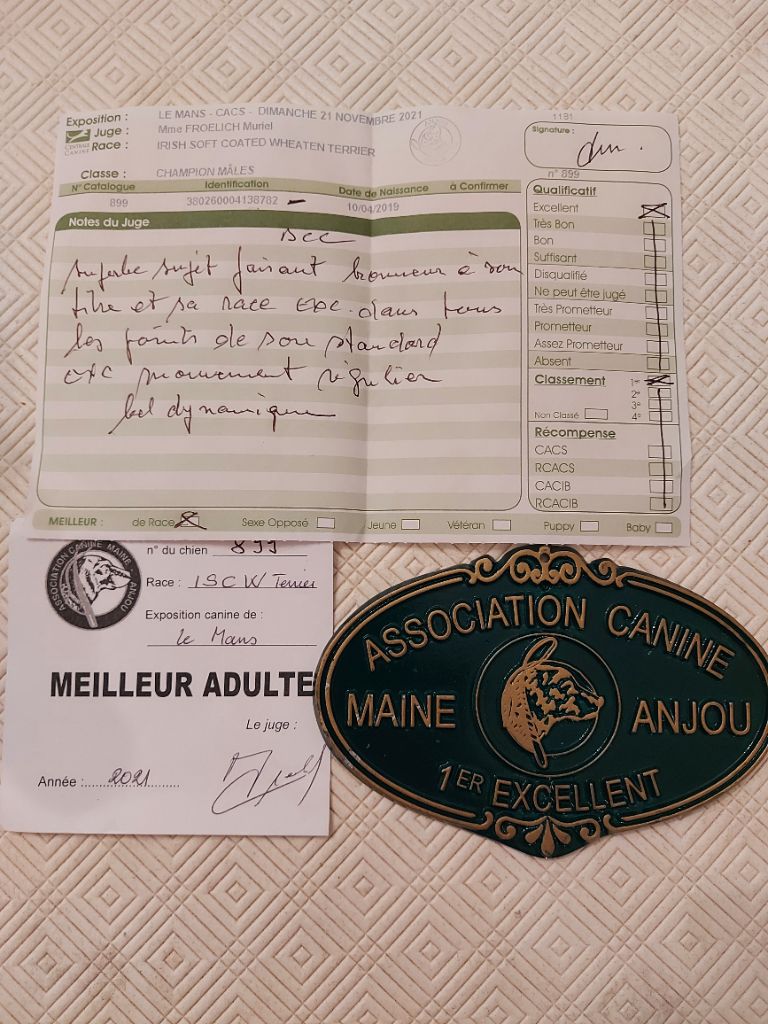 Exposition : LE MANS - CACS - DIMANCHE 21 NOVEMBRE 2021
Juge : Mme FROELICH Muriel
CENTRALE CANINE
Race : IRISH SOFT COATED WHEATEN TERRIER
Classe : CHAMPION MÂLES
N° Catalogue Identification Date de Naissance à Confirmer
899 380260004138782 10/04/2019
Notes du Juge
BCC
superbe sujet faisant honneur à son
titre et sa race exc. dans tous
les points de son standard
exc mouvement régulier
bel dynamique
1191
Signature :
n° 899
Qualificatif
Excellent
Très Bon
Bon
Suffisant
Disqualifié
Ne peut être jugé
Très Prometteur
Prometteur
Assez Prometteur
Absent
Classement 1er
2e
3e
Non Classé 4e
Récompense
CACS
RCACS
CACIB
RCACIB
MEILLEUR : de Race Sexe Opposé Jeune Vétéran Puppy Baby
ASSOCIATION CANINE MAINE ANJOU
n° du chien 899
Race : ISCW Terrier
Exposition canine de :
Le Mans
MEILLEUR ADULTE
Le juge :
Année : 2021
ASSOCIATION CANINE
MAINE ANJOU
1ER EXCELLENT